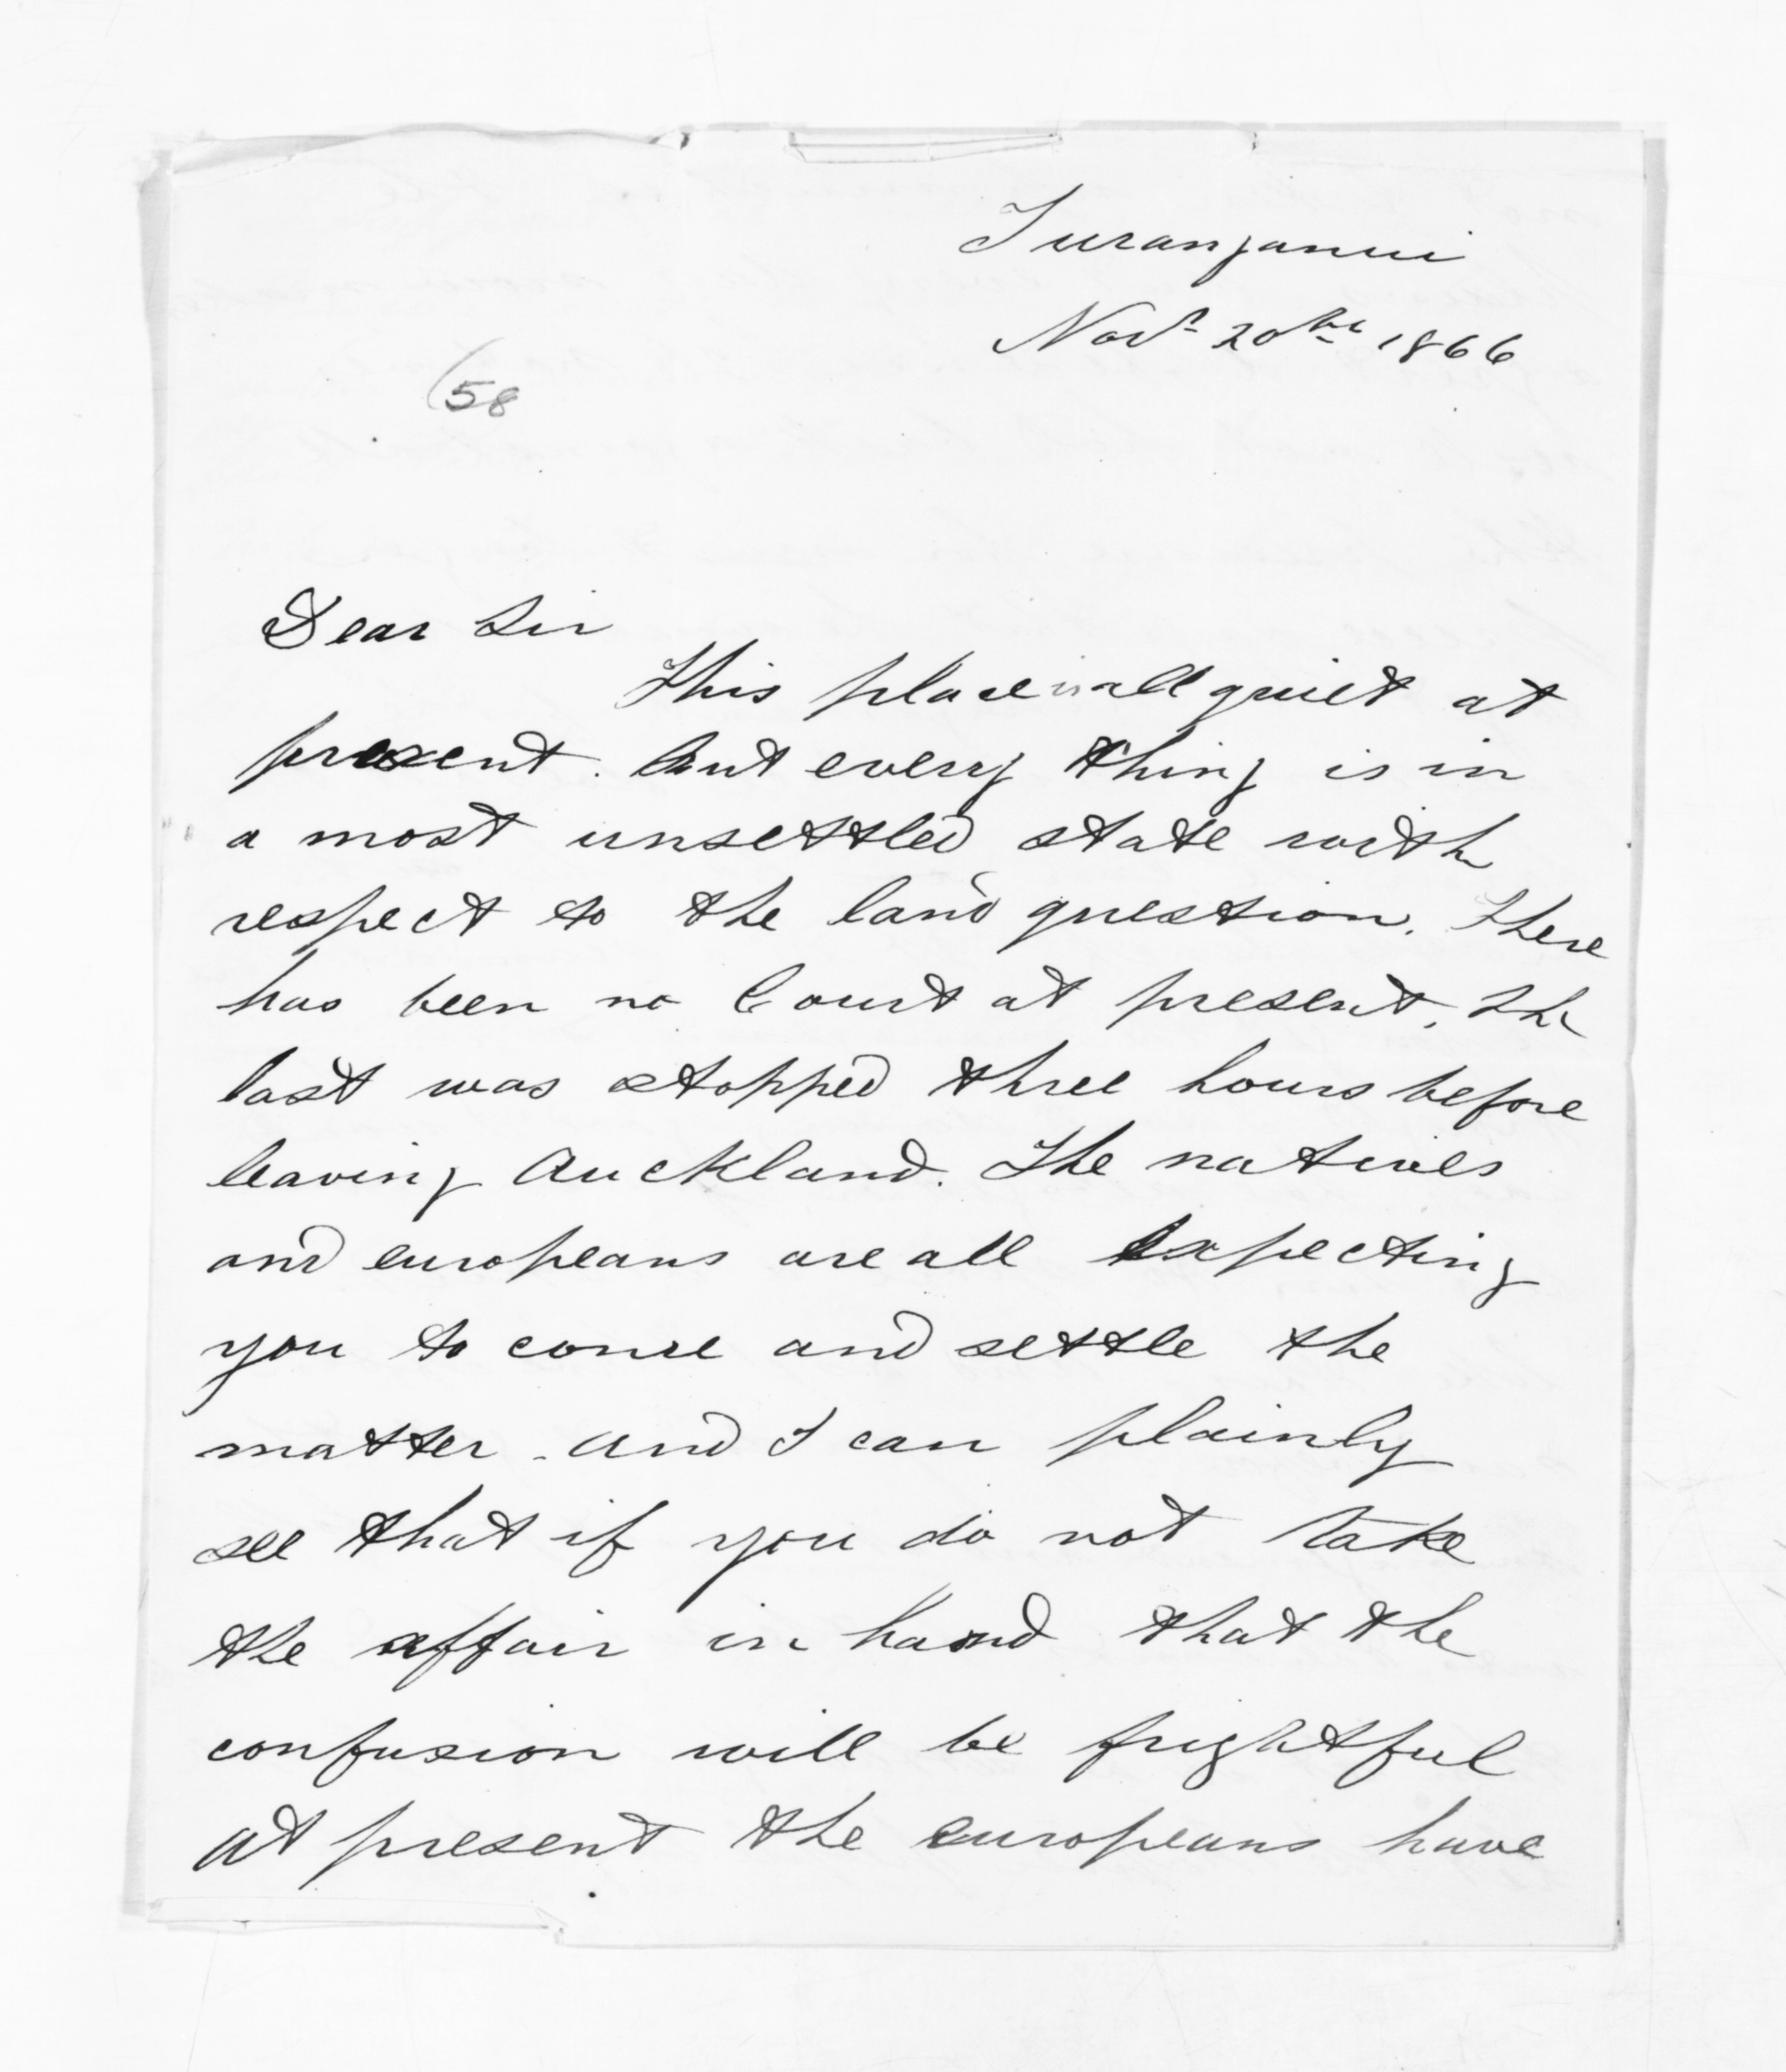 Turanganui
Novr 20th 1866
(58
Dear Sir
This place is all quiet at
present. but every thing is in
a most unsettled state with
respect to the land question. There
has been no Court at present, the
last was stopped three hours before
leaving Auckland. The natives
and europeans are all expecting
you to come and settle the
matter - and I can plainly
see that if you do not take
the affair in hand that the
confusion will be frightful
at present the europeans have